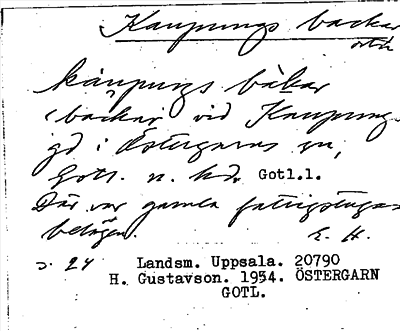 Kaupungs backar
kaupungs bakar
backar vid Kaupungs
gd i Östergarns sn,
Gotl. n. hd. Gotl.l.
Där var gamla fattigstugan
belägen. E. H.
s. 24 Landsm. Uppsala. 20790
H. Gustavson. 1954. ÖSTERGARN
GOTL.